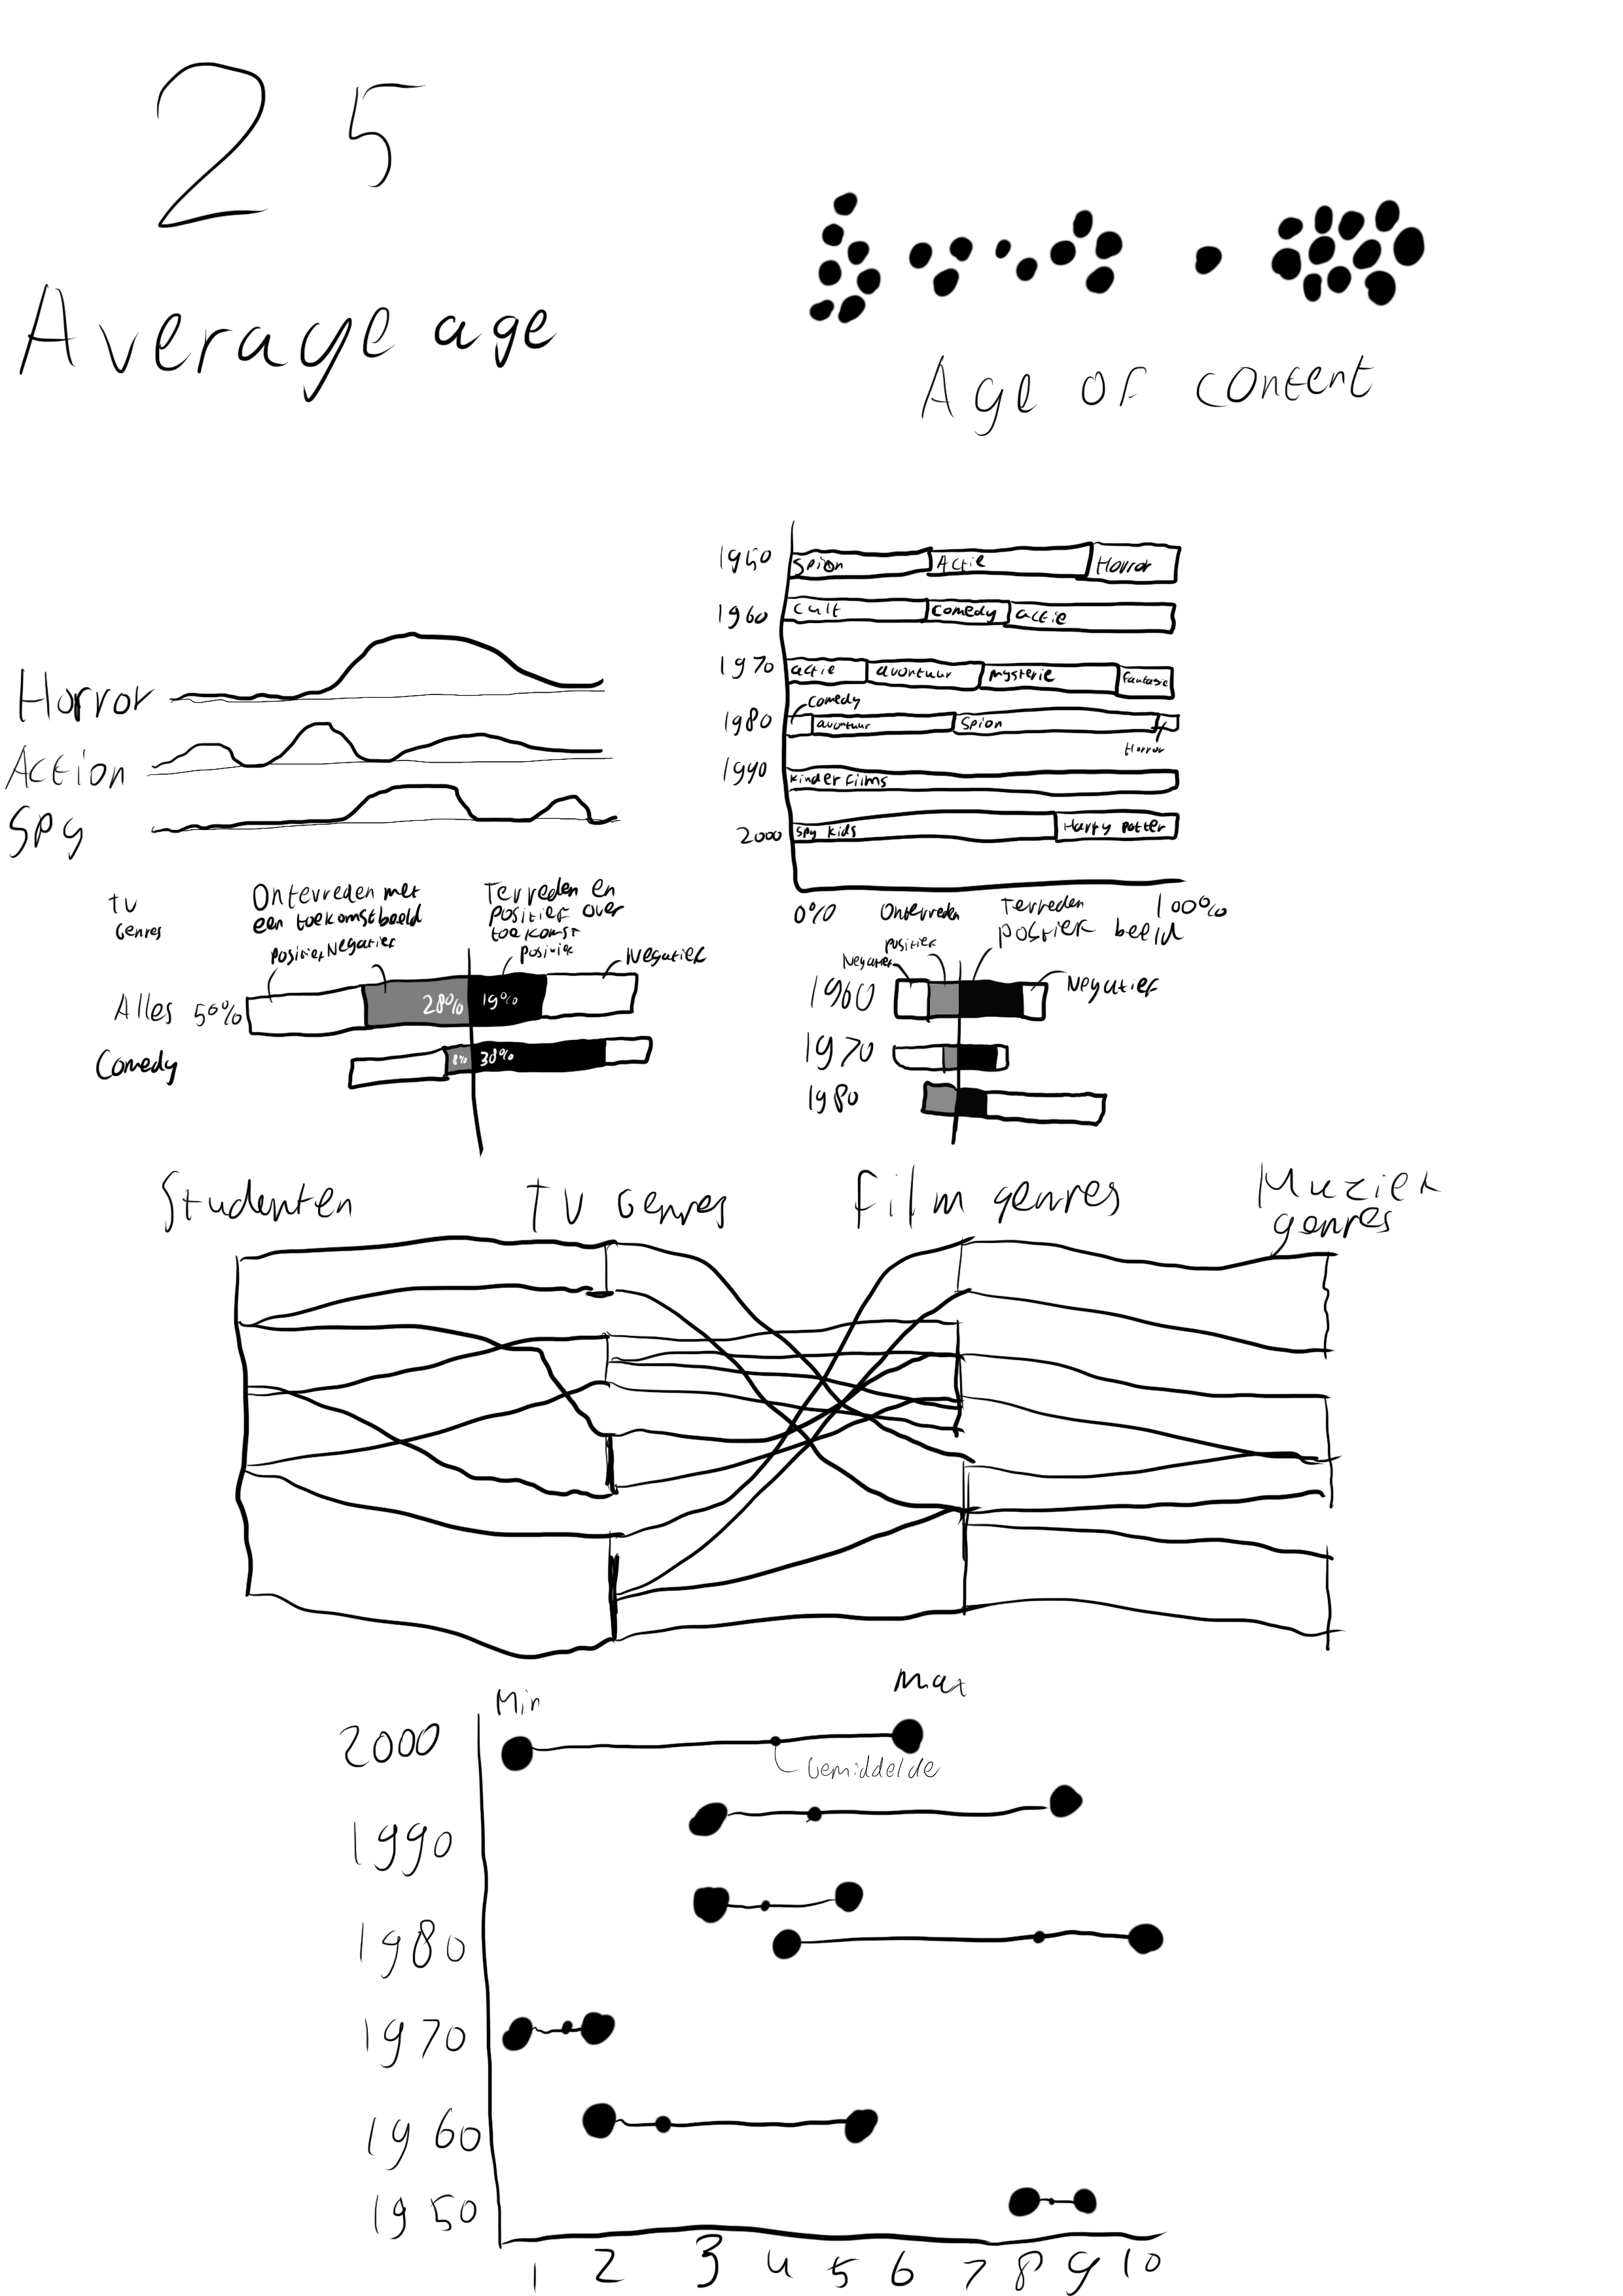 25
Average age
Age of content
Horror
Action
Spy
1950 Spion Actie Horror
1960 cult comedy actie
1970 actie avontuur mysterie fantasie
comedy
1980 avontuur Spion
Horror
1990 kinder films
2000 spy kids Harry potter
0% 100%
TV
Genres
Ontevreden met
een toekomstbeeld
positief Negatief
Tevreden en
positief over
toekomst
positief Negatief
Alles 50% 28% 19%
Comedy 8% 38%
Ontevreden
positief
Negatief
Tevreden
positief beeld
Negatief
1960
1970
1980
Studenten TV Genres Film genres Muziek
genres
Min Max
2000
Gemiddelde
1990
1980
1970
1960
1950
1 2 3 4 5 6 7 8 9 10